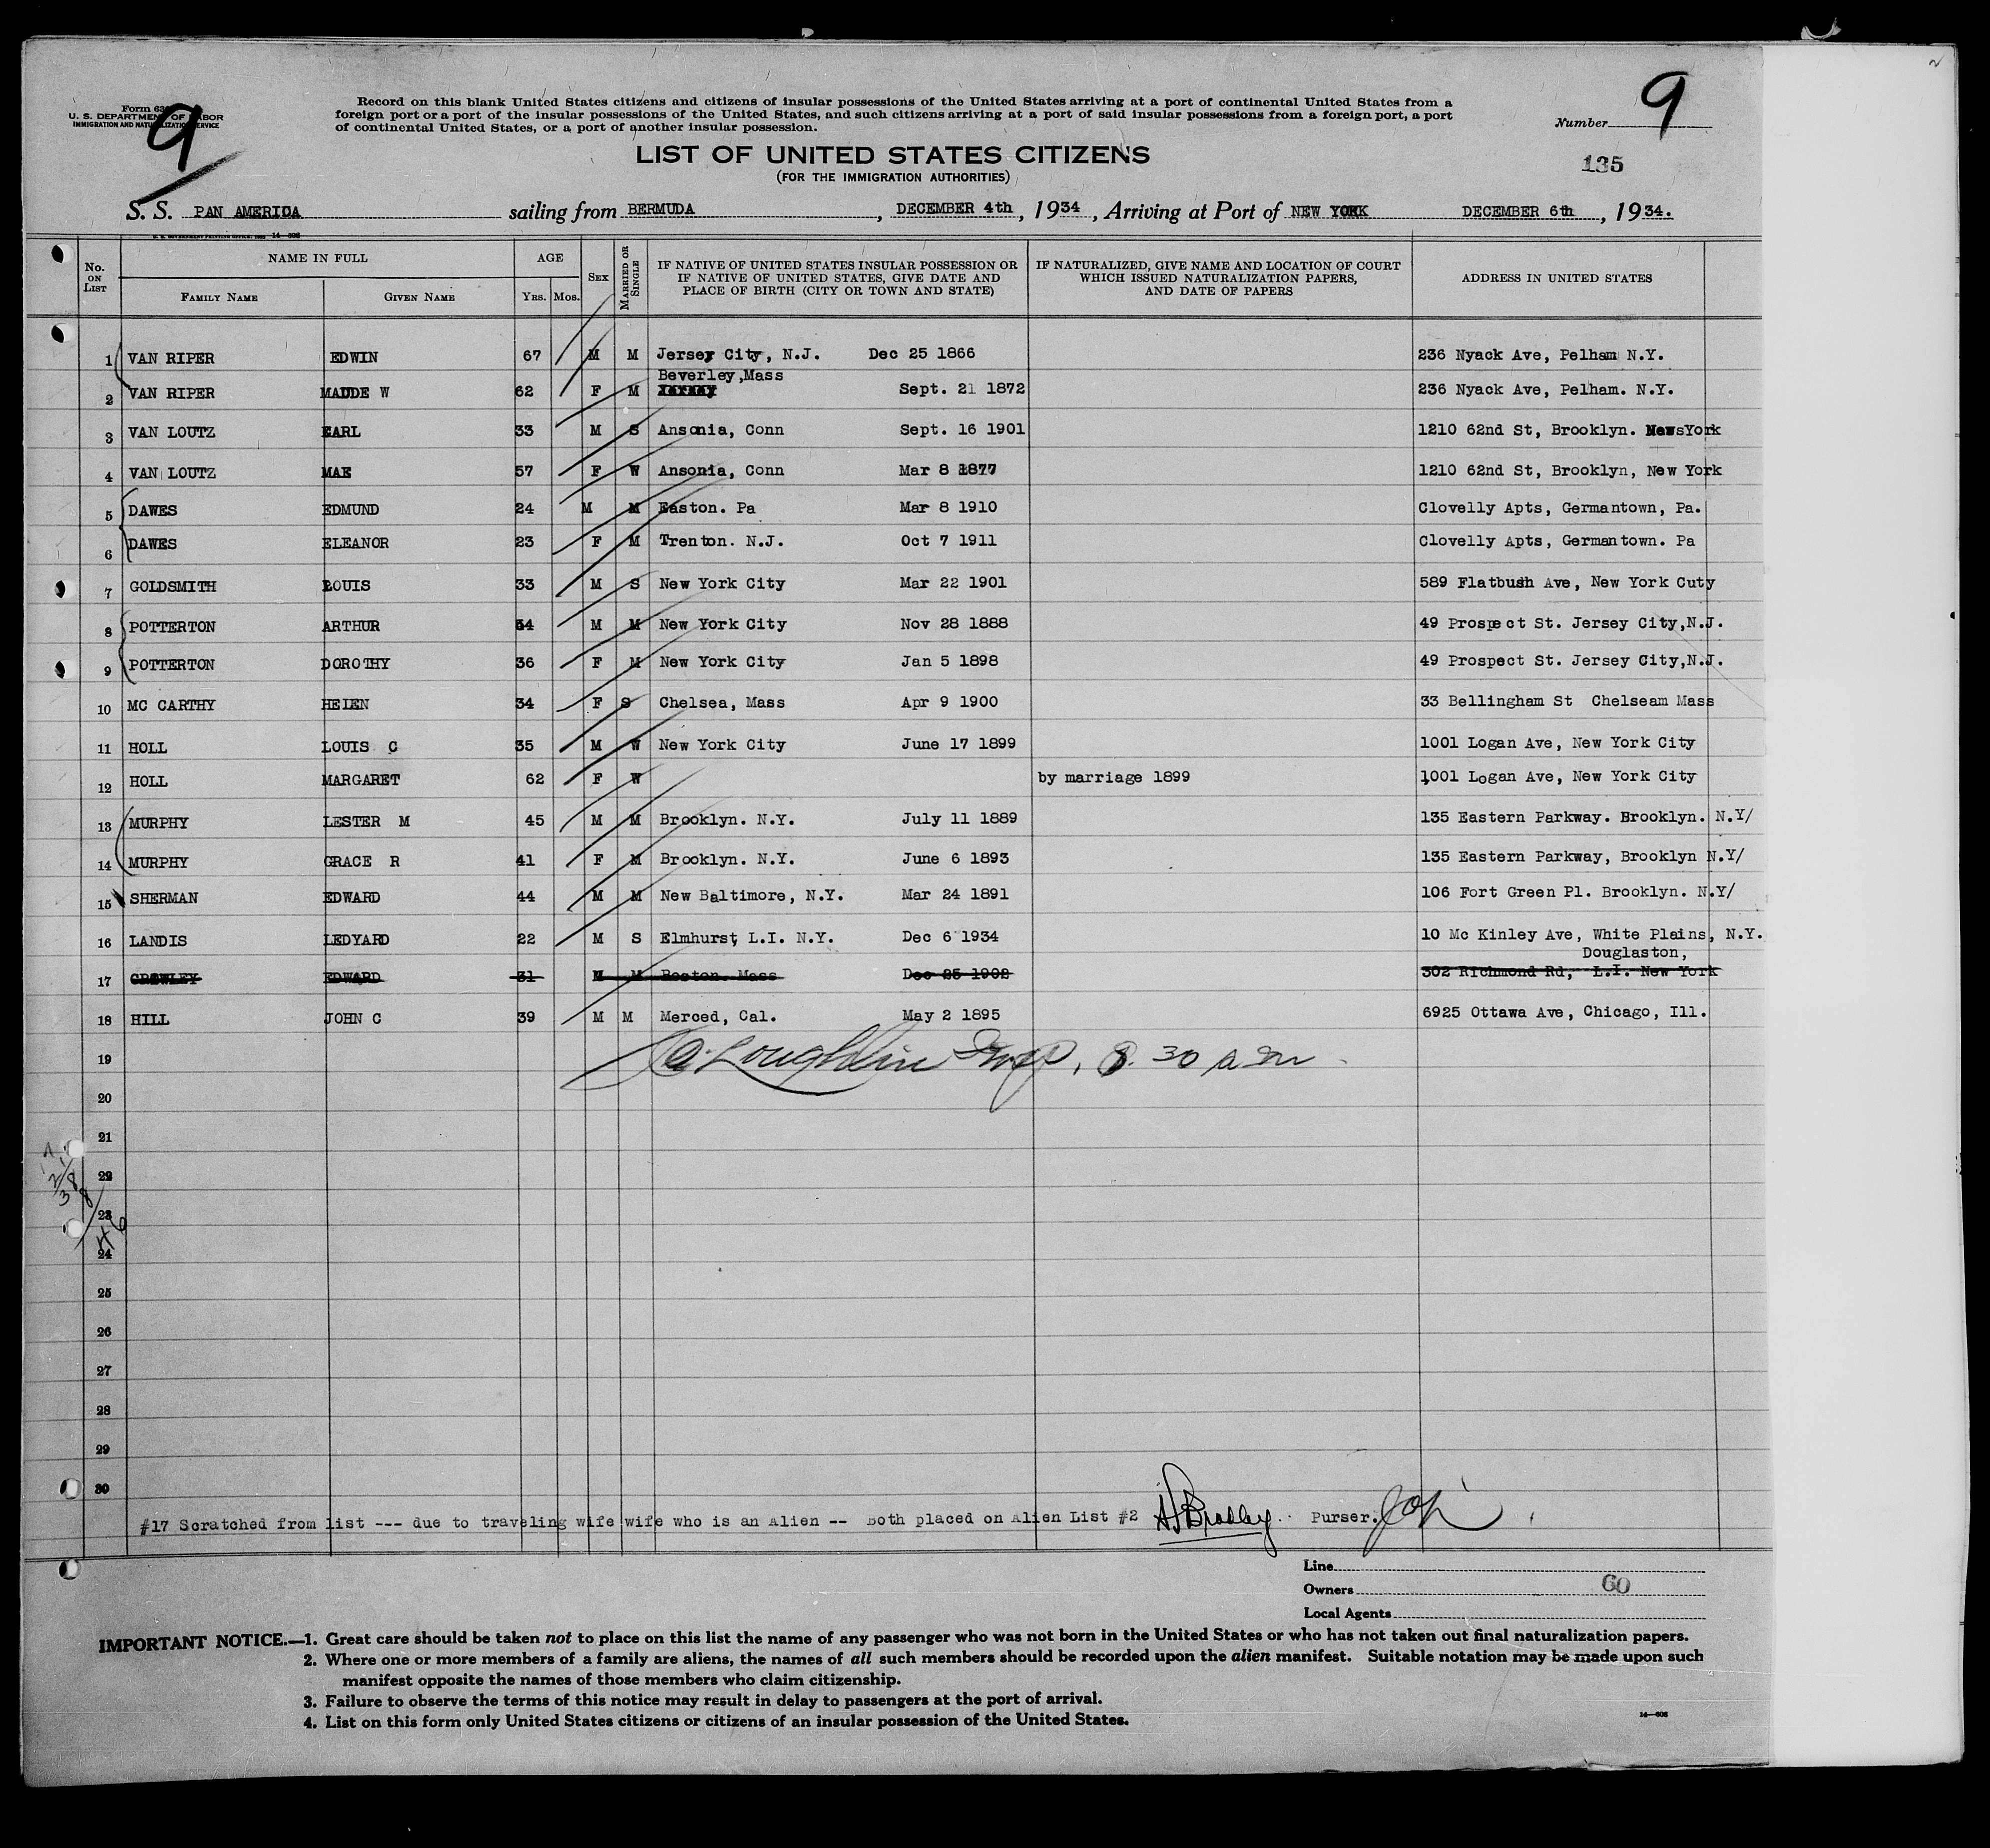 Form 63
U. S. DEPARTMENT OF LABOR
IMMIGRATION AND NATURALIZATION SERVICE
9
Record on this blank United States citizens and citizens of insular possessions of the United States arriving at a port of continental United States from a
foreign port or a port of the insular possessions of the United States, and such citizens arriving at a port of said insular possessions from a foreign port, a port
of continental United States, or a port of another insular possession.
Number 9
LIST OF UNITED STATES CITIZENS
(FOR THE IMMIGRATION AUTHORITIES)
135
S. S. PAN AMERICA sailing from BERMUDA, DECEMBER 4th, 1934, Arriving at Port of NEW YORK DECEMBER 6th, 1934.
No. ON LIST NAME IN FULL AGE SEX MARRIED OR SINGLE IF NATIVE OF UNITED STATES INSULAR POSSESSION OR IF NATIVE OF UNITED STATES, GIVE DATE AND PLACE OF BIRTH (CITY OR TOWN AND STATE) IF NATURALIZED, GIVE NAME AND LOCATION OF COURT WHICH ISSUED NATURALIZATION PAPERS, AND DATE OF PAPERS ADDRESS IN UNITED STATES
FAMILY NAME GIVEN NAME YRS. MOS.
1 VAN RIPER EDWIN 67 M M Jersey City, N.J. Dec 25 1866 236 Nyack Ave, Pelham N.Y.
Beverley,Mass
2 VAN RIPER MAUDE W 62 F M Sept. 21 1872 236 Nyack Ave, Pelham. N.Y.
3 VAN LOUTZ EARL 33 M S Ansonia, Conn Sept. 16 1901 1210 62nd St, Brooklyn. NewsYork
4 VAN LOUTZ MAE 57 F W Ansonia, Conn Mar 8 1877 1210 62nd St, Brooklyn, New York
5 DAWES EDMUND 24 M M Easton. Pa Mar 8 1910 Clovelly Apts, Germantown, Pa.
6 DAWES ELEANOR 23 F M Trenton. N.J. Oct 7 1911 Clovelly Apts, Germantown. Pa
7 GOLDSMITH LOUIS 33 M S New York City Mar 22 1901 589 Flatbush Ave, New York Cuty
8 POTTERTON ARTHUR M M New York City Nov 28 1888 49 Prospect St. Jersey City,N.J.
9 POTTERTON DOROTHY 36 F M New York City Jan 5 1898 49 Prospect St. Jersey City,N.J.
10 MC CARTHY HElEN 34 F S Chelsea, Mass Apr 9 1900 33 Bellingham St Chelseam Mass
11 HOLL LOUIS C 35 M W New York City June 17 1899 1001 Logan Ave, New York City
12 HOLL MARGARET 62 F W by marriage 1899 1001 Logan Ave, New York City
13 MURPHY LESTER M 45 M M Brooklyn. N.Y. July 11 1889 135 Eastern Parkway. Brooklyn. N.Y/
14 MURPHY GRACE R 41 F M Brooklyn. N.Y. June 6 1893 135 Eastern Parkway, Brooklyn N.Y/
15 SHERMAN EDWARD 44 M M New Baltimore, N.Y. Mar 24 1891 106 Fort Green Pl. Brooklyn. N.Y/
16 LANDIS LEDYARD 22 M S Elmhurst, L.I. N.Y. Dec 6 1934 10 Mc Kinley Ave, White Plains, N.Y.
Douglaston,
17 CROWLEY EDWARD 31 M M Boston. Mass Dec 25 1902 302 Richmond Rd, L.I. New York
18 HILL JOHN C 39 M M Merced, Cal. May 2 1895 6925 Ottawa Ave, Chicago, Ill.
19 Loughlin Insp, 8.30 am
20
21
22
23
24
25
26
27
28
29
30
#17 Scratched from list --- due to traveling wife wife who is an Alien -- Both placed on Alien List #2 Bradley Purser.
Line
Owners 60
Local Agents
IMPORTANT NOTICE.—1. Great care should be taken not to place on this list the name of any passenger who was not born in the United States or who has not taken out final naturalization papers.
2. Where one or more members of a family are aliens, the names of all such members should be recorded upon the alien manifest. Suitable notation may be made upon such
manifest opposite the names of those members who claim citizenship.
3. Failure to observe the terms of this notice may result in delay to passengers at the port of arrival.
4. List on this form only United States citizens or citizens of an insular possession of the United States.